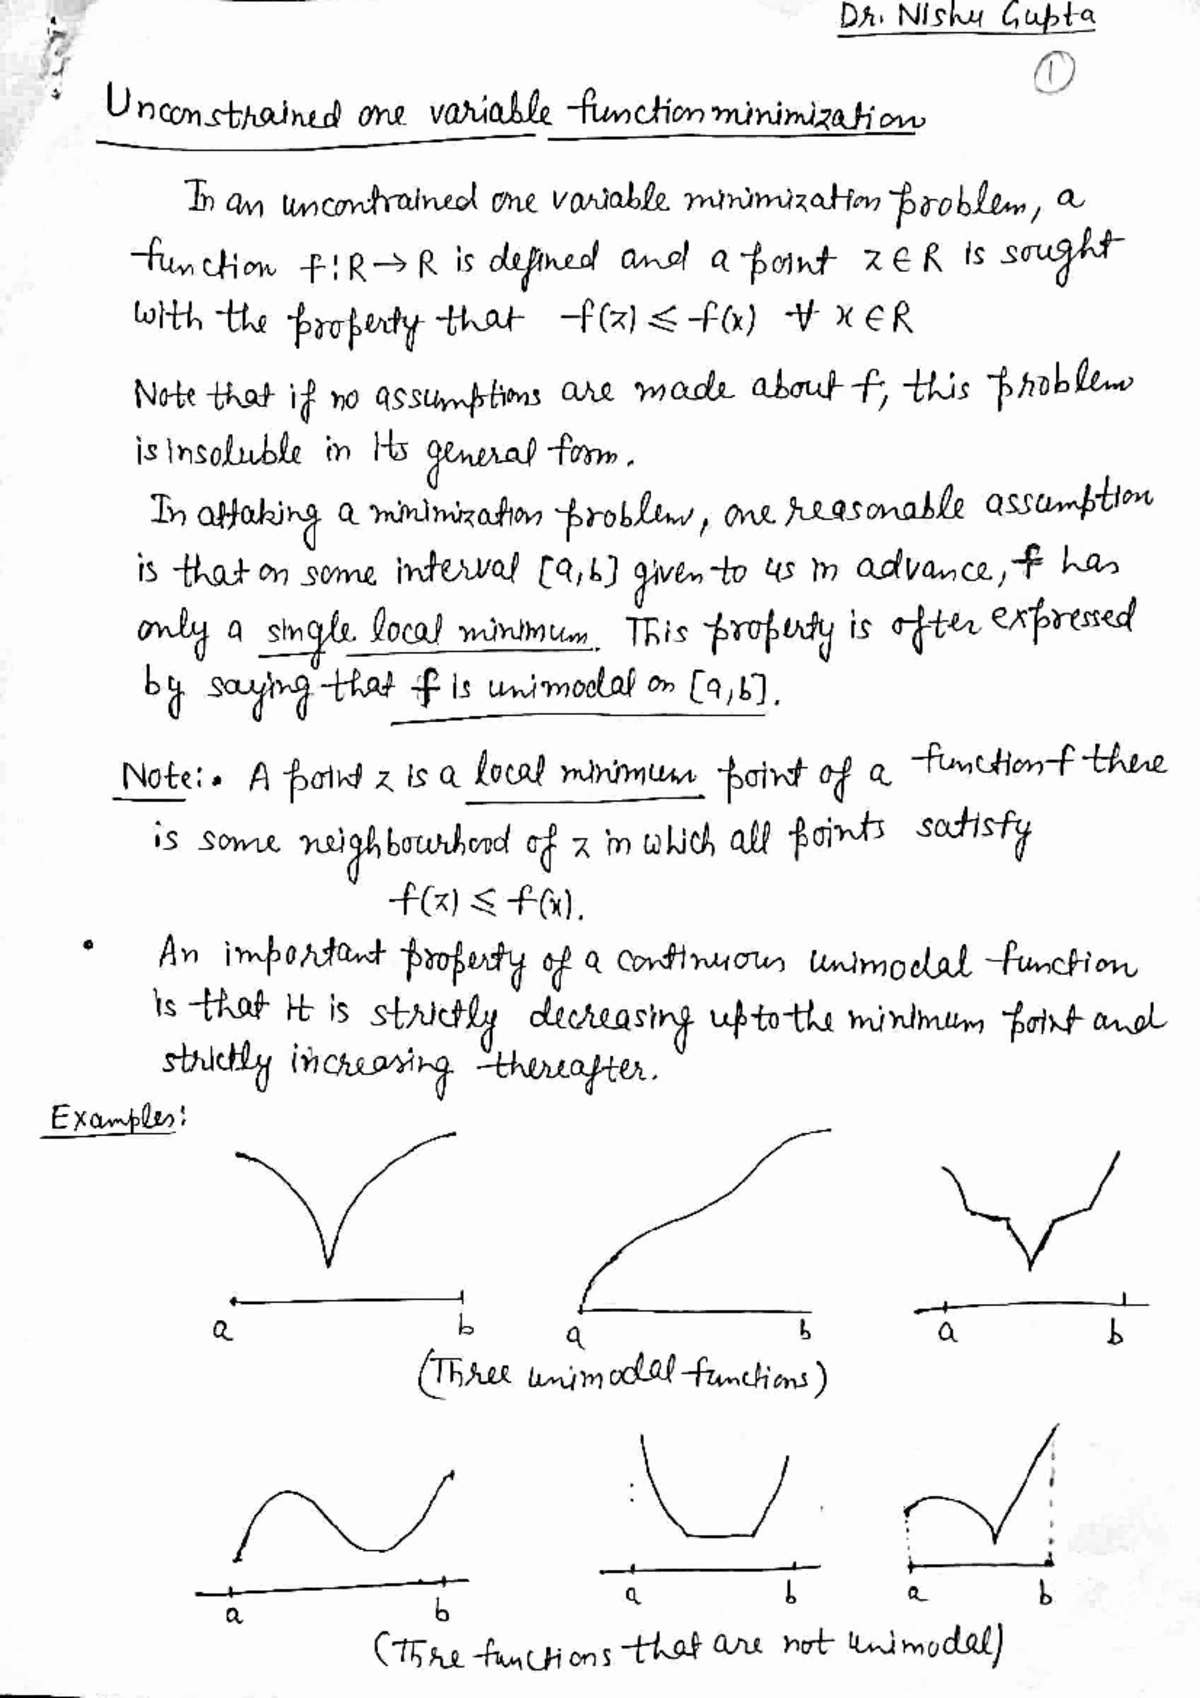 Dr. Nishu Gupta
1
Unconstrained one variable function minimization
In an uncontrained one variable minimization problem, a
function f: R → R is defined and a point z ∈ R is sought
with the property that f(z) ≤ f(x) ∀ x ∈ R
Note that if no assumptions are made about f, this problem
is insoluble in its general form.
In attaking a minimization problem, one reasonable assumption
is that on some interval [a,b] given to us in advance, f has
only a single local minimum. This property is often expressed
by saying that f is unimodal on [a,b].
Note: • A point z is a local minimum point of a function f there
is some neighbourhood of z in which all points satisfy
f(z) ≤ f(x).
• An important property of a continuous unimodal function
is that it is strictly decreasing up to the minimum point and
strictly increasing thereafter.
Examples:
a b a b a b
(Three unimodal functions)
a b a b a b
(Thre functions that are not unimodal)